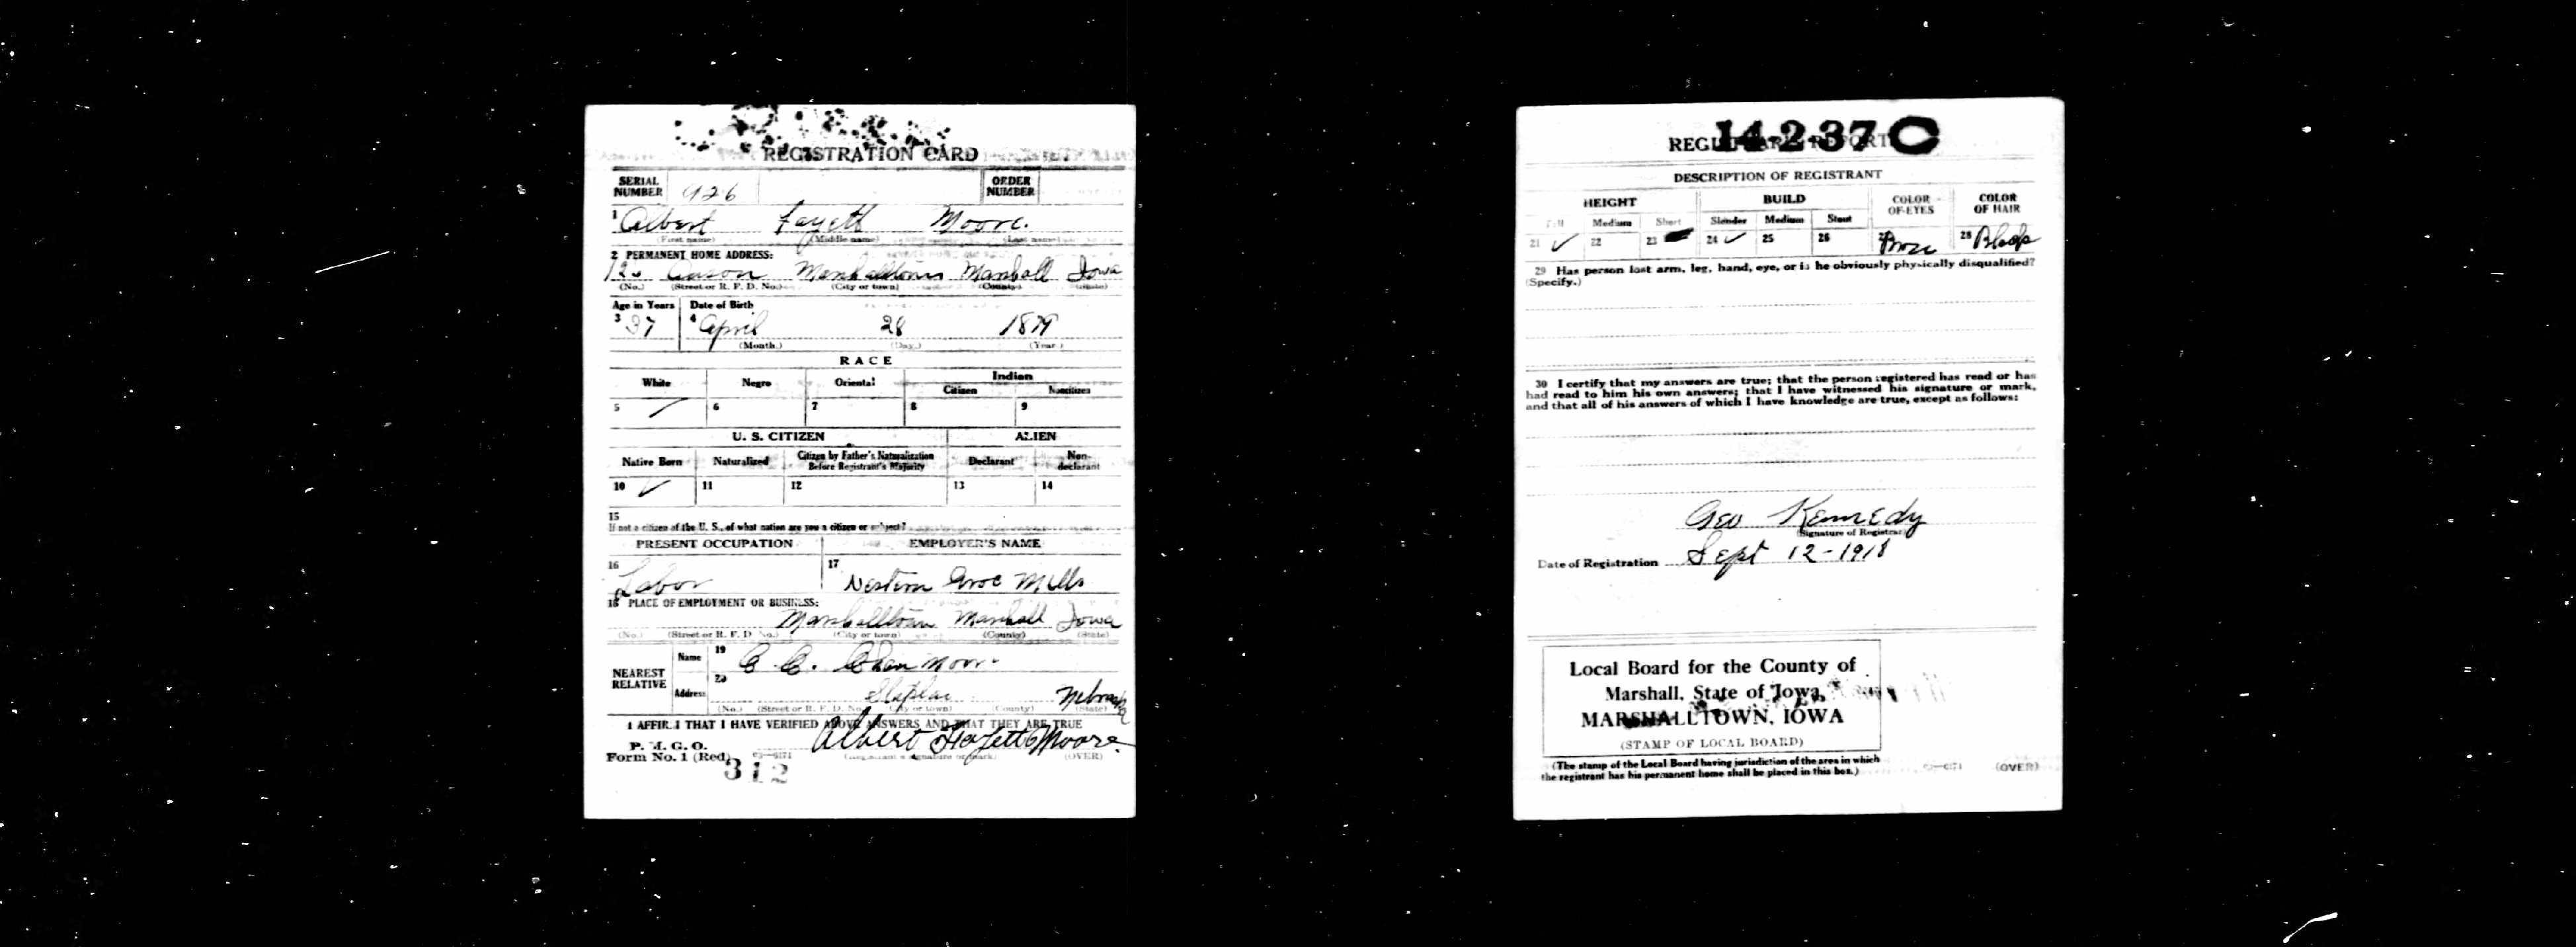 REGISTRATION CARD
SERIAL NUMBER 926 ORDER NUMBER
1 Albert Fayett Moore.
(First name) (Middle name) (Last name)
2 PERMANENT HOME ADDRESS:
Marshalltown Marshall Iowa
(No.) (Street or R. F. D. No.) (City or town) (County) (State)
Age in Years Date of Birth
3 37 4 April 28 1879
(Month.) (Day.) (Year.)
RACE
White Negro Oriental Indian
Citizen Noncitizen
5 ✓ 6 7 8 9
U. S. CITIZEN ALIEN
Native Born Naturalized Citizen by Father's Naturalization Before Registrant's Majority Declarant Non-declarant
10 ✓ 11 12 13 14
15
If not a citizen of the U. S., of what nation are you a citizen or subject?
PRESENT OCCUPATION EMPLOYER'S NAME
16 Labor 17 Western Groc Mills
18 PLACE OF EMPLOYMENT OR BUSINESS:
Marshalltown Marshall Iowa
(No.) (Street or R. F. D. No.) (City or town) (County) (State)
NEAREST RELATIVE Name 19
Address 20 Nebraska
(No.) (Street or R. F. D. No.) (City or town) (County) (State)
I AFFIRM THAT I HAVE VERIFIED ABOVE ANSWERS AND THAT THEY ARE TRUE
P. M. G. O.
Form No. 1 (Red) 03—6171 Albert Fayette Moore
(Registrant's signature or mark) (OVER)
312
14-2-37 C
REGISTRAR'S REPORT
DESCRIPTION OF REGISTRANT
HEIGHT BUILD COLOR OF EYES COLOR OF HAIR
Tall Medium Short Slender Medium Stout
21 ✓ 22 23 24 ✓ 25 26 27 28
29 Has person lost arm, leg, hand, eye, or is he obviously physically disqualified?
(Specify.)
30 I certify that my answers are true; that the person registered has read or has
had read to him his own answers; that I have witnessed his signature or mark,
and that all of his answers of which I have knowledge are true, except as follows:
Geo Kennedy
(Signature of Registrar)
Date of Registration Sept 12-1918
Local Board for the County of
Marshall, State of Iowa,
MARSHALLTOWN, IOWA
(STAMP OF LOCAL BOARD)
(The stamp of the Local Board having jurisdiction of the area in which
the registrant has his permanent home shall be placed in this box.) 03—6171 (OVER)